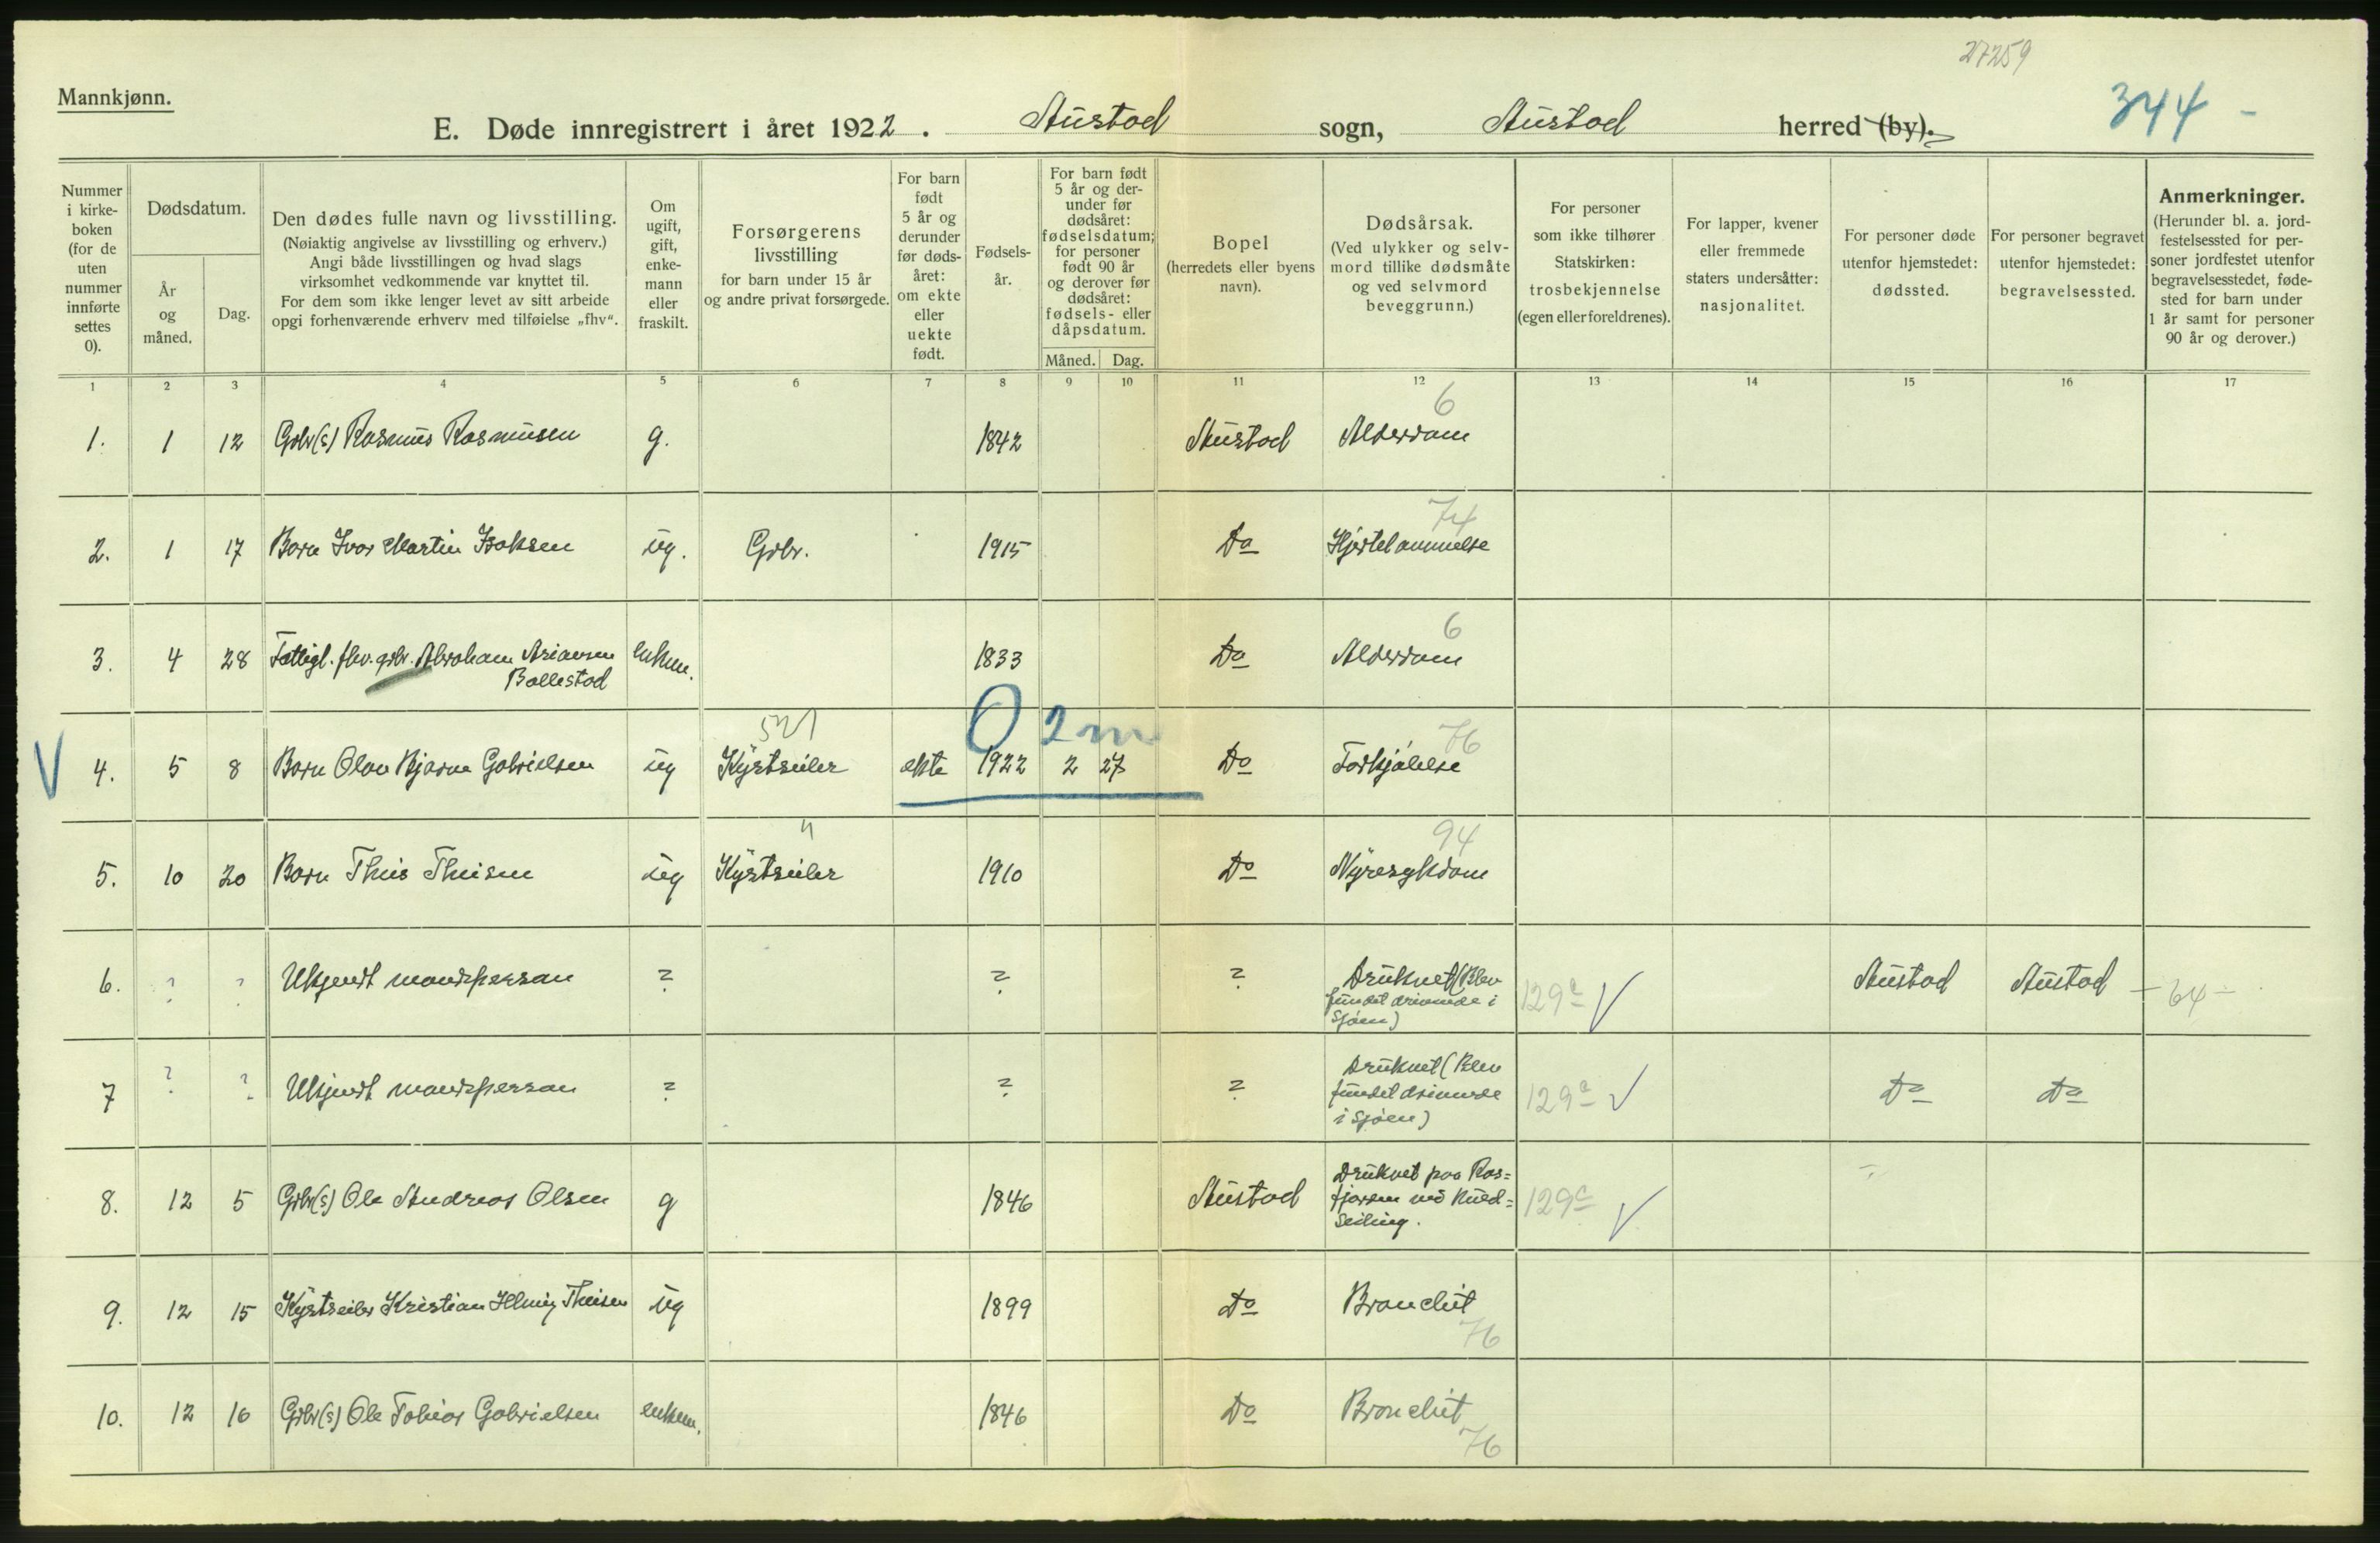 27259
Mannkjønn.
344 -
E. Døde innregistrert i året 1922. Austad sogn, Austad herred (by).
Nummer i kirke-boken (for de uten nummer innførte settes 0).
Dødsdatum.
År og måned.
Dag.
Den dødes fulle navn og livsstilling.
(Nøiaktig angivelse av livsstilling og erhverv.)
Angi både livsstillingen og hvad slags
virksomhet vedkommende var knyttet til.
For dem som ikke lenger levet av sitt arbeide
opgi forhenværende erhverv med tilføielse „fhv“.
Om ugift, gift, enke-mann eller fraskilt.
Forsørgerens livsstilling
for barn under 15 år
og andre privat forsørgede.
For barn født 5 år og derunder før døds-året: om ekte eller uekte født.
Fødsels-år.
For barn født 5 år og der-under før dødsåret: fødselsdatum; for personer født 90 år og derover før dødsåret: fødsels- eller dåpsdatum.
Måned. Dag.
Bopel
(herredets eller byens navn).
Dødsårsak.
(Ved ulykker og selv-mord tillike dødsmåte og ved selvmord beveggrunn.)
For personer som ikke tilhører Statskirken: trosbekjennelse (egen eller foreldrenes).
For lapper, kvener eller fremmede staters undersåtter: nasjonalitet.
For personer døde utenfor hjemstedet: dødssted.
For personer begravet utenfor hjemstedet: begravelsessted.
Anmerkninger.
(Herunder bl. a. jord-festelsessted for per-soner jordfestet utenfor begravelsesstedet, føde-sted for barn under 1 år samt for personer 90 år og derover.)
1 2 3 4 5 6 7 8 9 10 11 12 13 14 15 16 17
1. 1 12 Grbr(s) Rasmus Rasmusen g. 1842 Austad Alderdom 6
2. 1 17 Barn Ivar Martin Isaksen ug. Grbr. 1915 Do Hjertelammelse 74
3. 4 28 Fattigl. fhv. grbr. Abraham Ariansen Ballestad enkem. 1833 Do Alderdom 6
V 4. 5 8 Barn Olav Bjarne Gabrielsen ug 521 Kystseiler ekte 1922 2 27 0 2 m Do Forkjølelse 76
5. 10 20 Barn Theis Theisen ug " Kystseiler 1910 Do Nyresykdom 94
6. ? ? Ukjendt mandsperson ? ? ? Druknet (Blev fundet drivende i Sjøen) 129c V Austad Austad - 64 -
7 ? ? Ukjendt mandsperson ? ? ? Druknet (Blev fundet drivende i Sjøen) 129c V Do Do
8. 12 5 Grbr(s) Ole Andreas Olsen g 1846 Austad Druknet paa Ros=fjorden ved Kuld=seiling. 129c V
9. 12 15 Kystseiler Kristian Theisen ug 1899 Do Bronchit 76
10. 12 16 Grbr(s) Ole Tobias Gabrielsen enkem. 1846 Do Bronchit 76